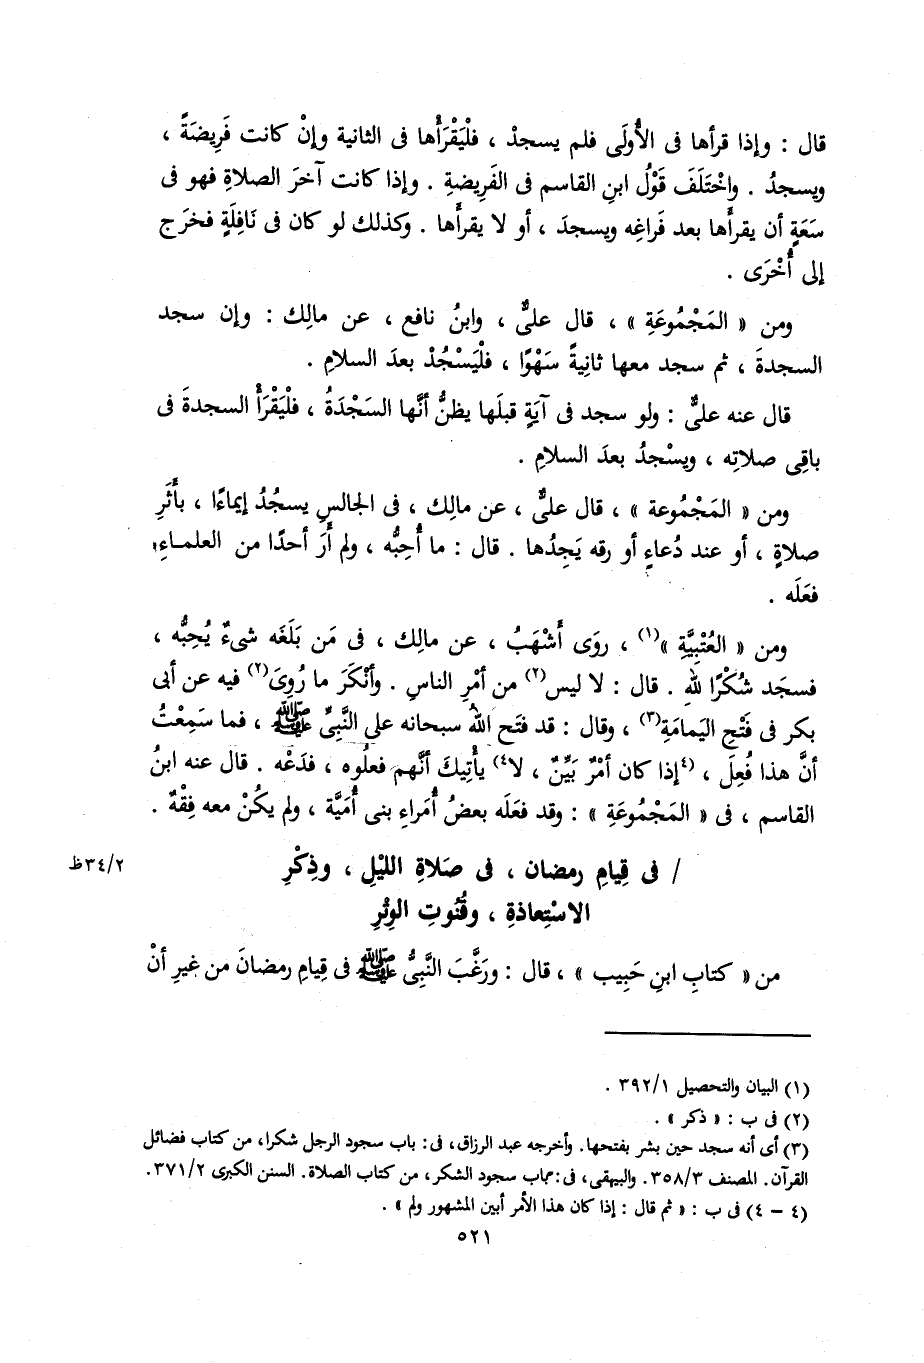 قال : وإذا قرأها فى الأُولَى فلم يسجدْ ، فلْيَقْرَأْها فى الثانية وإنْ كانت فَرِيضَةً ،
ويسجدُ . واخْتَلَفَ قَوْلُ ابنِ القاسم فى الفَرِيضةِ . وإذا كانت آخرَ الصلاةِ فهو فى
سَعَةٍ أن يقرأَها بعد فَراغِه ويسجدَ ، أو لا يقرأَها . وكذلك لو كان فى نَافِلَةٍ فخرَج
إلى أُخْرَى .
ومن « المَجْمُوعَةِ » ، قال علىٌّ ، وابنُ نافع ، عن مالِك : وإن سجد
السجدةَ ، ثم سجد معها ثانِيةً سَهْوًا ، فلْيَسْجُدْ بعدَ السلامِ .
قال عنه علىٌّ : ولو سجد فى آيَةٍ قبلَها يظنُّ أنَّها السَجْدَةُ ، فلْيَقْرَأْ السجدةَ فى
باقِى صلاتِه ، ويسْجدُ بعدَ السلامِ .
ومن « المَجْمُوعة » ، قال علىٌّ ، عن مالِك ، فى الجالسِ يسجُدُ إيماءًا ، بأَثَرِ
صلاةٍ ، أو عند دُعاءٍ أو رقه يَجِدُها . قال : ما أُحِبُّه ، ولم أرَ أحدًا من العلمــاءِ،
فعَلَه .
ومن « العُتْبِيَّةِ »(١) ، روَى أَشْهَبُ ، عن مالك ، فى مَن بَلَغَه شىءٌ يُحِبُّه ،
فسجَد شُكْرًا للهِ . قال : لا ليس(٢) من أمْرِ الناسِ . وأنْكَرَ ما رُوِىَ(٢) فيه عن أبى
بكر فى فَتْحِ اليَمامَةِ(٣) ، وقال : قد فتَح اللهُ سبحانه على النَّبِىِّ ﷺ ، فما سَمِعْتُ
أنَّ هذا فُعِلَ ، (٤إذا كان أمْرٌ بَيِّنٌ ، لا٤) يأْتِيكَ أنَّهم فعلُوه ، فدَعْه . قال عنه ابنُ
القاسم ، فى « المَجْمُوعَةِ » : وقد فعَلَه بعضُ أُمَراءِ بنى أُمَيَّة ، ولم يكُنْ معه فِقْهٌ .
/ فى قِيامِ رمضان ، فى صَلاةِ الليْلِ ، وذِكْرِ
٣٤/٢ظ
الاسْتِعاذةِ ، وقُنُوتِ الوِتْرِ
من « كتابِ ابنِ حَبِيب » ، قال : ورَغَّبَ النَّبِىُّ ﷺ فى قِيامِ رمضانَ من غيرِ أنْ
(١) البيان والتحصيل ٣٩٢/١ .
(٢) فى ب : « ذكر » .
(٣) أى أنه سجد حين بشر بفتحها. وأخرجه عبد الرزاق، فى: باب سجود الرجل شكرا، من كتاب فضائل
القرآن. المصنف ٣٥٨/٣. والبيهقى، فى: باب سجود الشكر، من كتاب الصلاة. السنن الكبرى ٣٧١/٢.
(٤ – ٤) فى ب : « ثم قال : إذا كان هذا الأمر أبين المشهور ولم » .
٥٢١